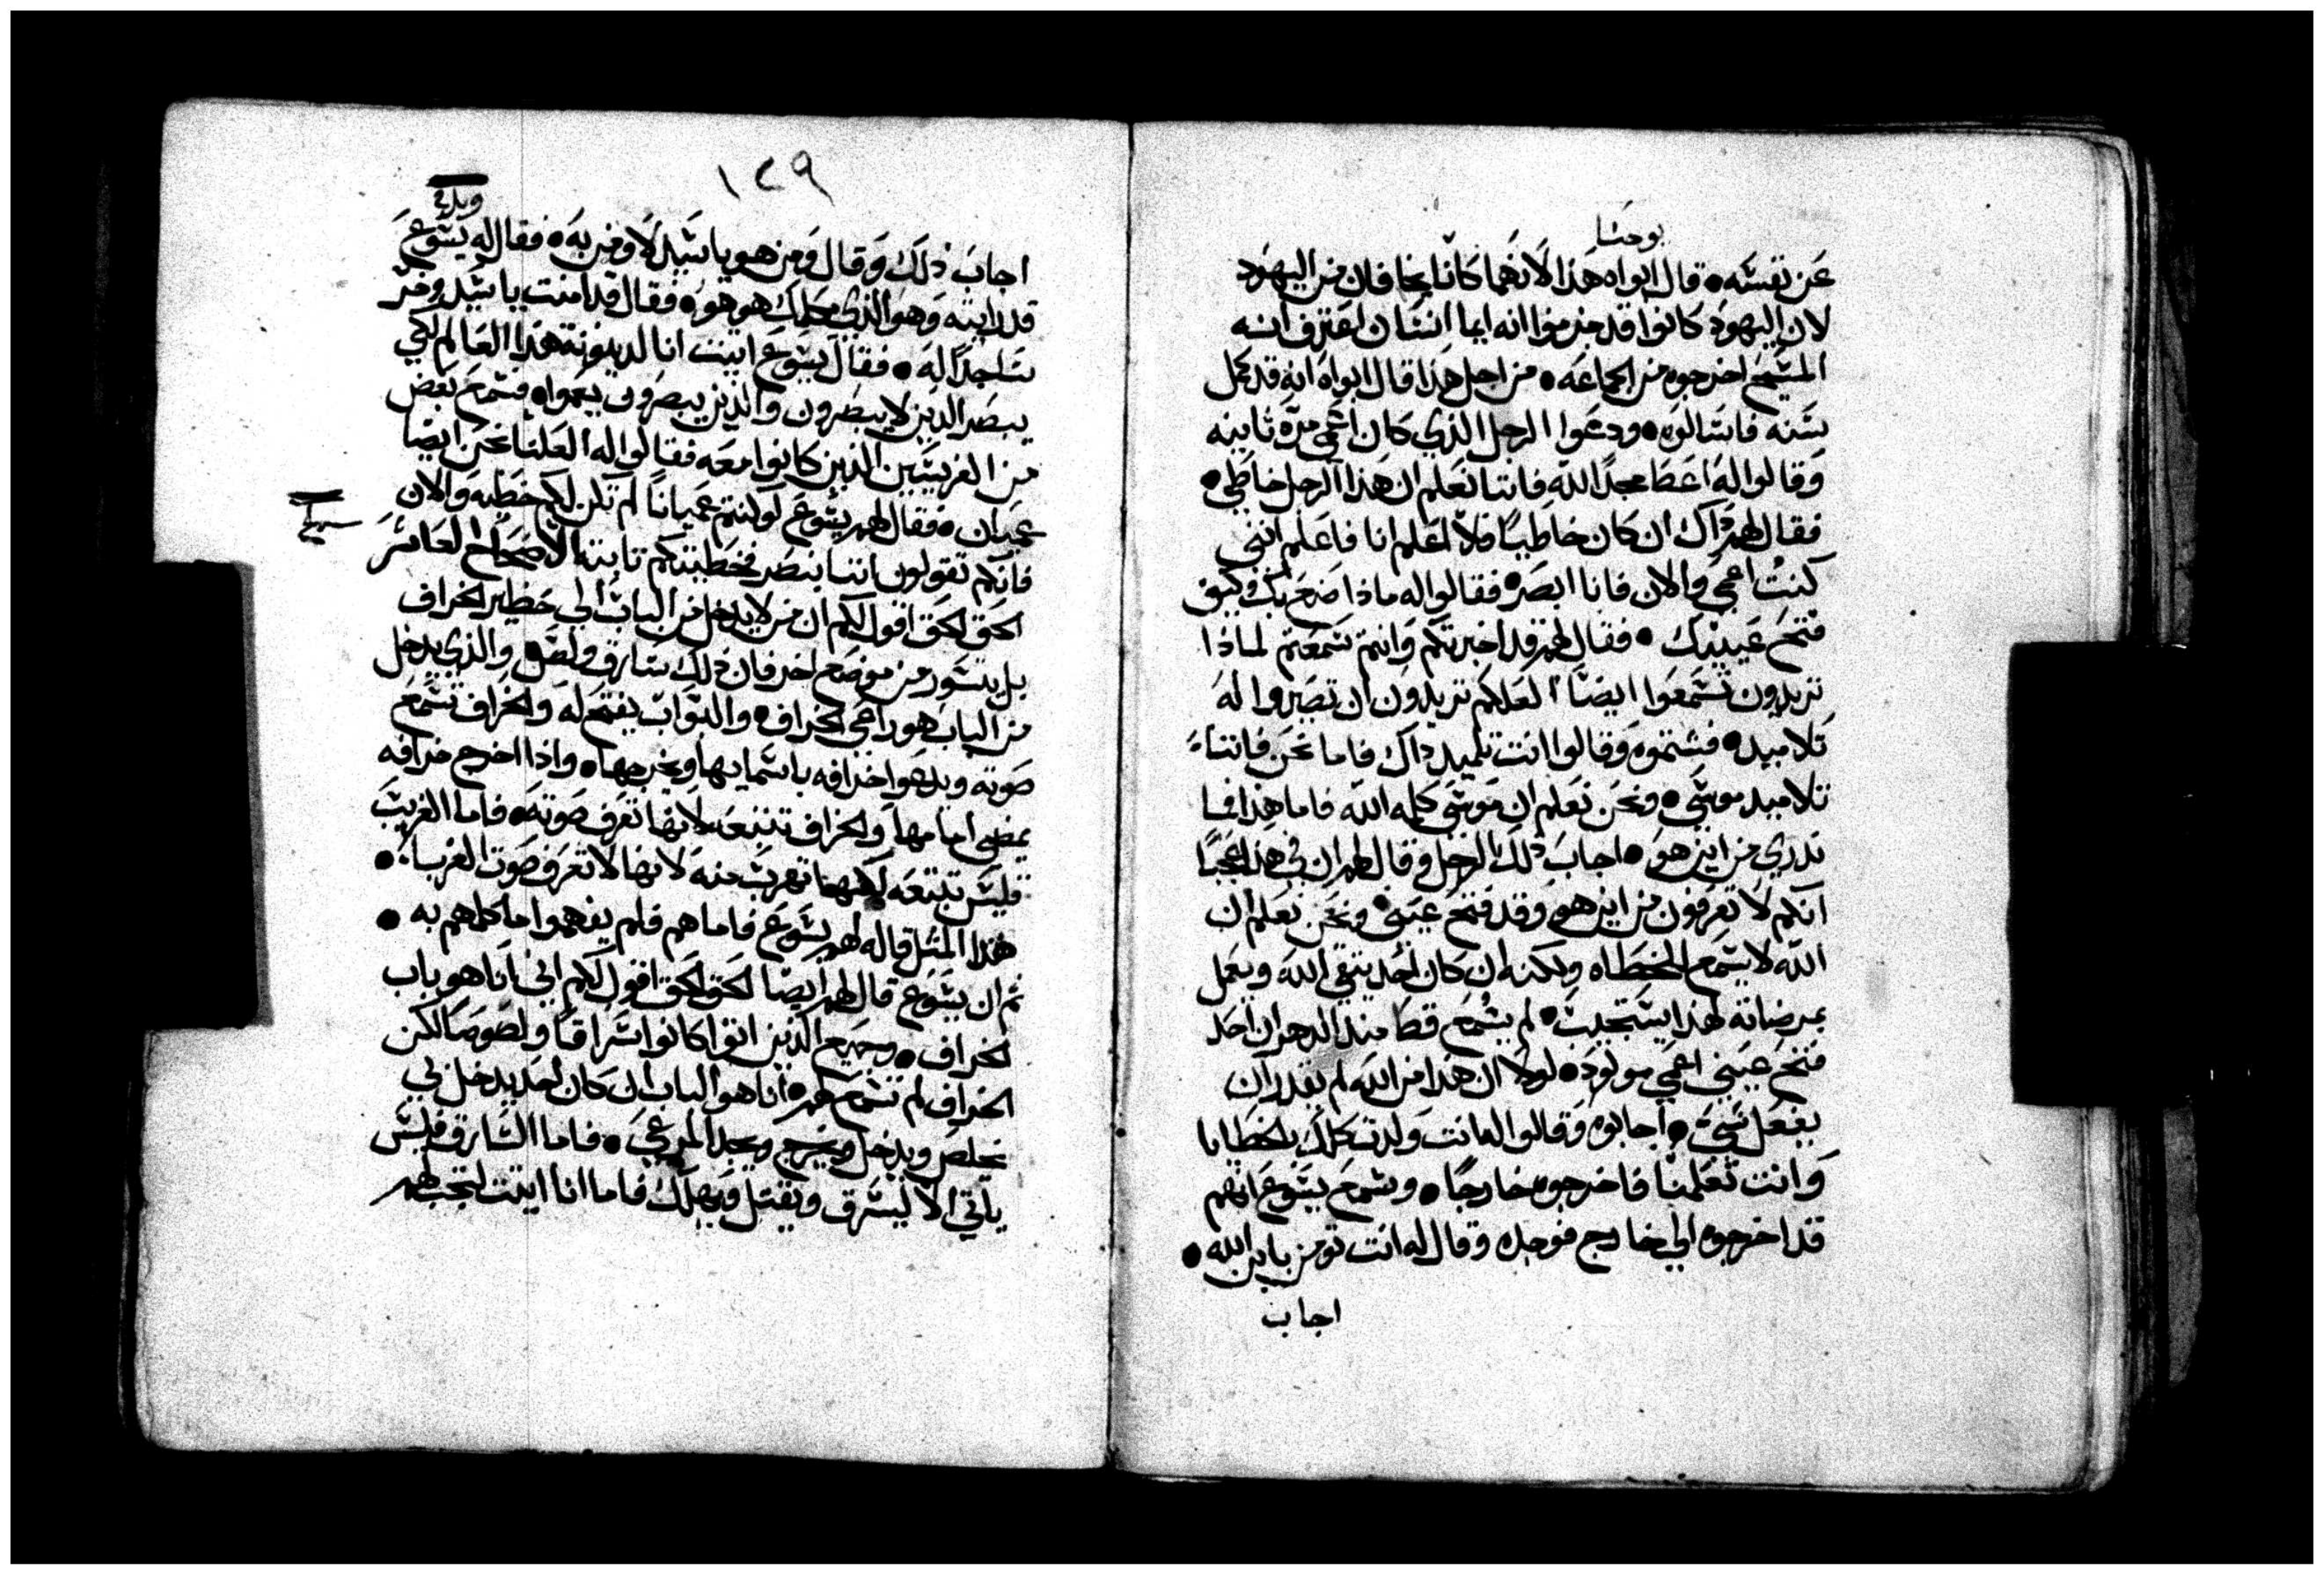 يوحنا
عن نفسه • قال ابواه هذا لانهما كانا يخافان من اليهود
لان اليهود كانوا قد جزموا انه ايما انسان اعترف انه
المسيح اخرجوه من الجماعه • من اجل هذا قال ابواه انه قد كمل
سنه فاسالوه • ودعوا الرجل الذي كان اعمي مرة ثانيه
وقالوا له اعطا مجدا لله فاننا نعلم ان هذا الرجل خاطي •
فقال لهم ذاك ان كان خاطيا فلا اعلم انا فاعلم انني
كنت اعمي والان فانا ابصر • فقالوا له ماذا صنع بك وكيف
فتح عينيك • فقال لهم قد اخبرتكم وانتم سمعتم لماذا
تريدون تسمعوا ايضا العلكم تريدون ان تصيروا له
تلاميد • فشتموه وقالوا انت تلميد ذاك فاما نحن فاننا
تلاميد موسي • ونحن نعلم ان موسي كلمه الله فاما هذا فما
ندري من اين هو • اجاب ذلك الرجل وقال لهم ان في هذا عجبا
انكم لا تعرفون من اين هو وقد فتح عيني • ونحن نعلم ان
الله لا يسمع الخطاه ولكنه ان كان احد يتقي الله ويعمل
بمرضاته لهذا يستجيب • لم يسمع قط مند الدهر ان احد
فتح عيني اعمي مولود • لولا ان هذا من الله لم يقدر ان
يفعل شي • اجابوه وقالوا له انت ولدت كلك بالخطايا
وانت تعلمنا فاخرجوه خارجا • وسمع يسوع انهم
قد اخرجوه الي خارج فوجده وقال له انت تومن بابن الله •
اجاب
١٢٩
اجاب ذلك وقال ومن هو يا سيد لاومن به • فقال له يسوع
قد رايته وهو الذي يكلمك هو هو • فقال قد امنت يا سيد وخر
ساجدا له • فقال يسوع اتيت انا لدينونة هذا العالم لكي
يبصر الدين لا يبصرون والذين يبصرون يعموا • فسمع بعض
من الفريسيين الذين كانوا معه فقالوا له العلنا نحن ايضا
عميان • فقال لهم يسوع لو كنتم عميانا لم تكن لكم خطيه والان
فانكم تقولون اننا نبصر فخطيتكم ثابته الاصحاح العاشر
الحق الحق اقول لكم ان من لا يدخل من الباب الي حظير الخراف
بل يتسور من موضع اخر فان ذلك سارق ولص • والذي يدخل
من الباب هو راعي الخراف • والبواب يفتح له والخراف تسمع
صوته ويدعوا خرافه باسمايها ويخرجها • واذا اخرج خرافه
يمضي امامها والخراف تتبعه لانها تعرف صوته • فاما الغريب
فليس تتبعه لكنها تهرب منه لانها لا تعرف صوت الغربا •
هذا المثل قاله لهم يسوع فاما هم فلم يفهموا ما كلمهم به •
ثم ان يسوع قال لهم ايضا الحق الحق اقول لكم اني انا هو باب
الخراف • وجميع الذين اتوا كانوا سراقا ولصوصا لكن
الخراف لم تسمع لهم • انا هو الباب ان كان احد يدخل بي
يخلص ويدخل ويخرج ويجد المرعي • فاما السارق فليس
ياتي الا ليسرق ويقتل ويهلك فاما انا اتيت لتجب لهم